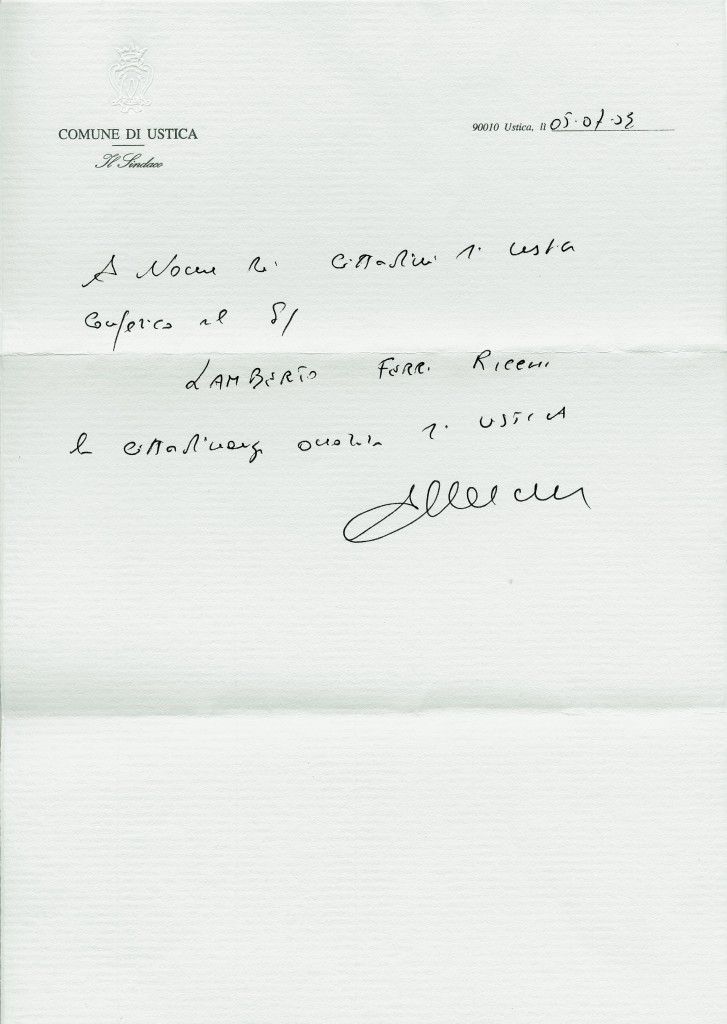 COMUNE DI USTICA
Il Sindaco
90010 Ustica, lì 05.07.03
A Nome dei Cittadini di Ustica
Conferisco al S/
LAMBERTO FERRI RICCHI
la cittadinanza onoraria di USTICA